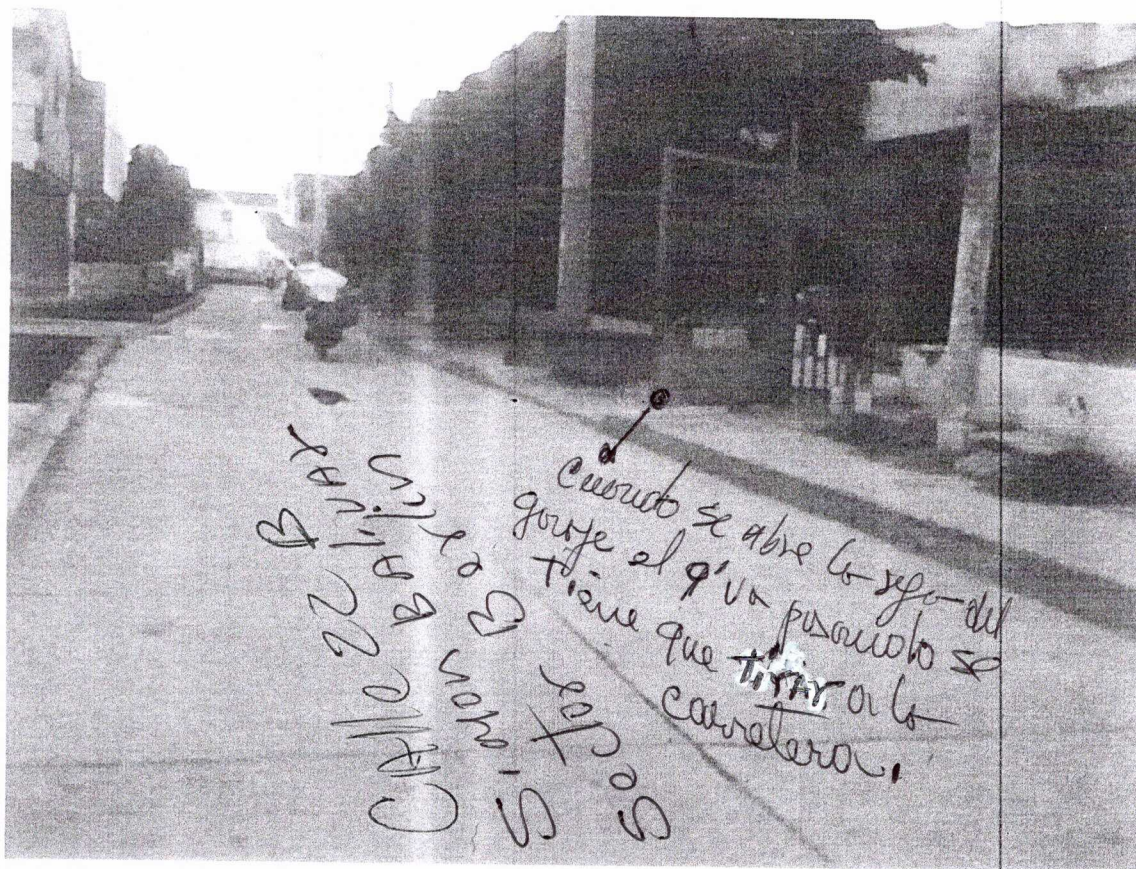 cuando se abre la reja del
garaje el q' va pasando se
tiene que tirar a la
carretera.
CAlle 22 B
S'imon BAlivar
Sector Belen